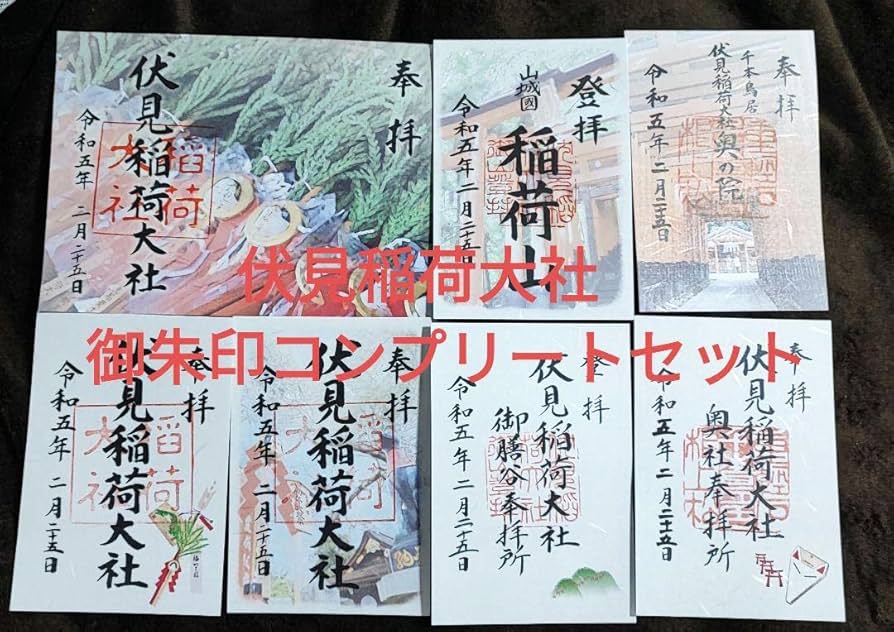 奉拝
伏見稲荷大社
稲荷
大社
令和五年 二月二十五日
登拝
山城國
稲荷山
令和五年 二月二十五日
奉拝
千本鳥居
伏見稲荷大社 奥の院
令和五年 二月二十五日
伏見稲荷大社
御朱印コンプリートセット
奉拝
伏見稲荷大社
稲荷
大社
令和五年 二月二十五日
奉拝
伏見稲荷大社
稲荷
大社
令和五年 二月二十五日
登拝
伏見稲荷大社
御膳谷奉拝所
令和五年 二月二十五日
奉拝
伏見稲荷大社
奥社奉拝所
令和五年 二月二十五日